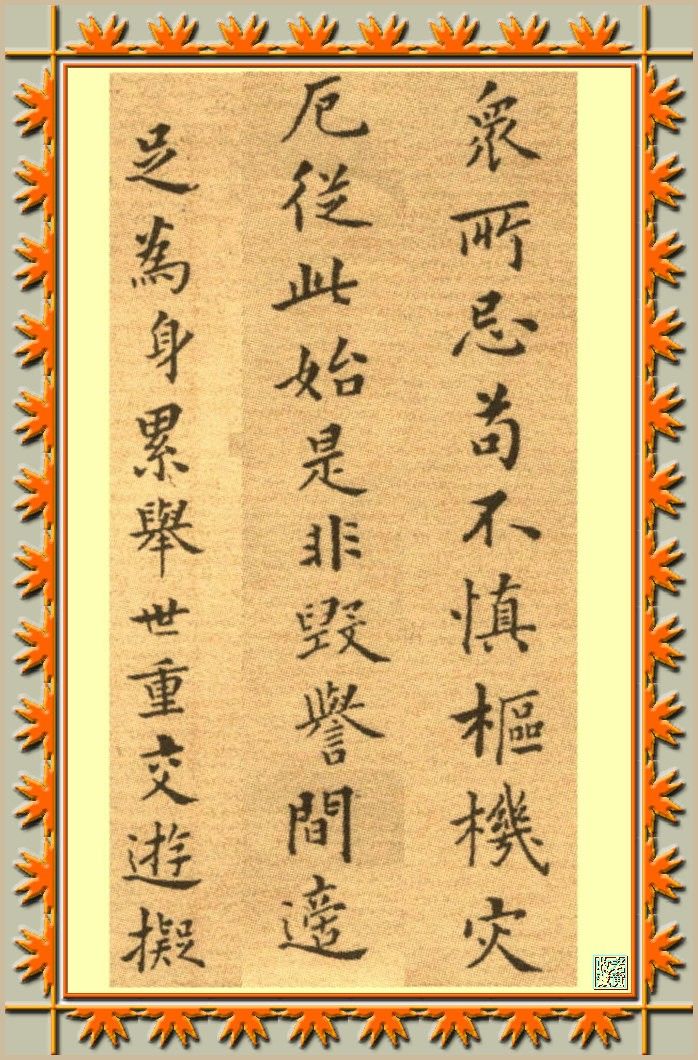 衆所忌苟不慎樞機灾
厄従此始是非毀譽間適
足為身累舉世重交遊擬